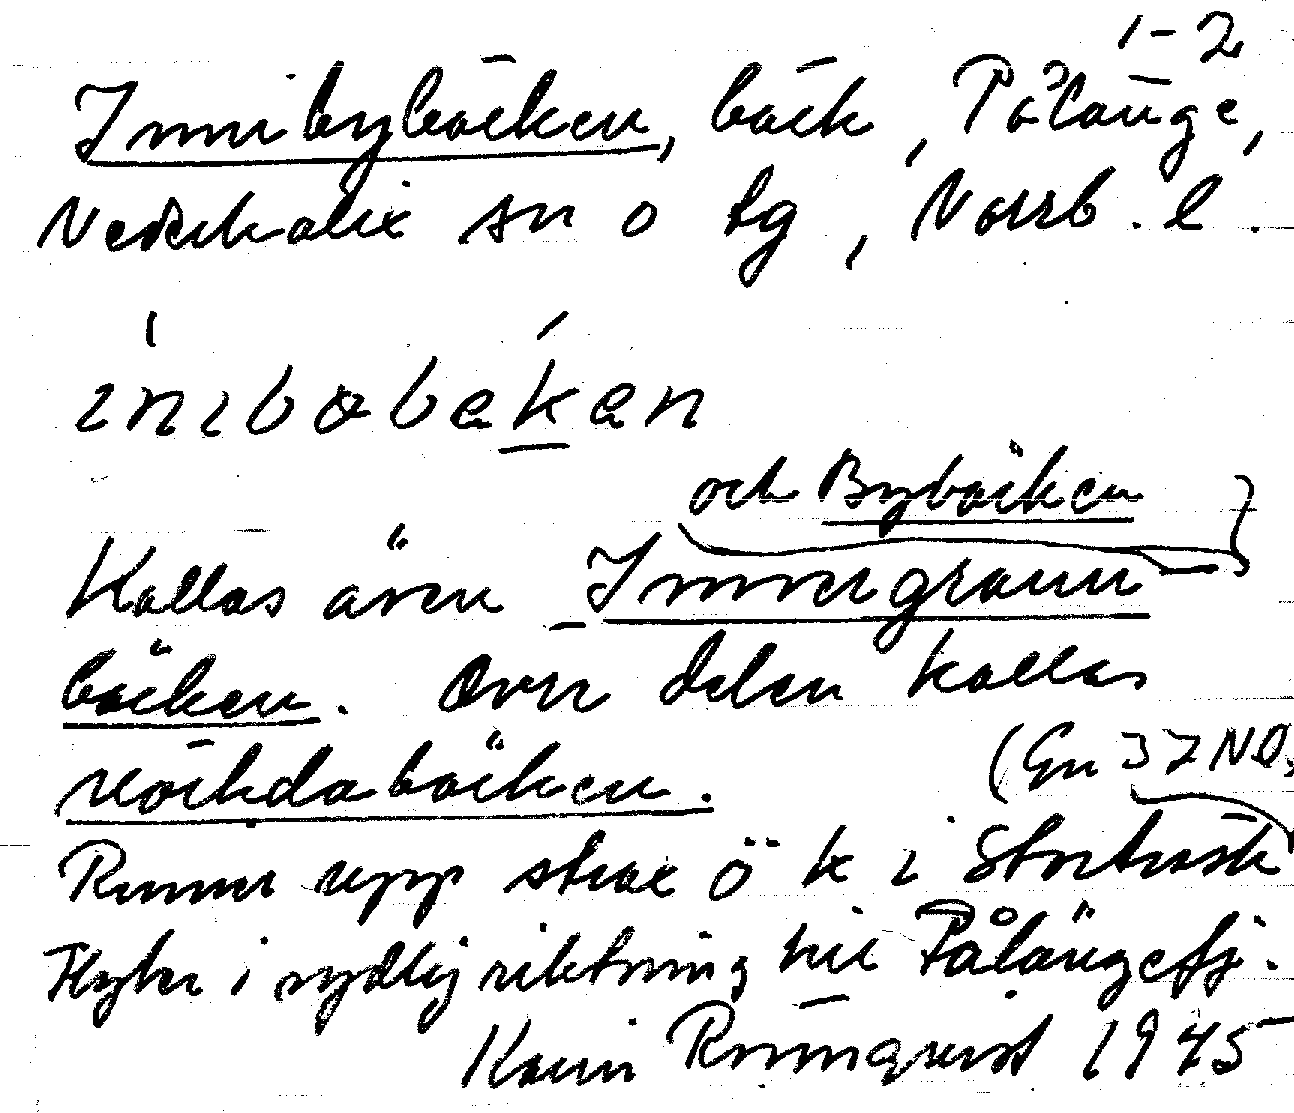 1-2
Innibybäcken, bäck, Pålänge,
Nederkalix sn o tg, Norrb. l.
inibobekan
och Bybäcken
Kallas även Innergränn-
bäcken. Övre delen kallas
Rörkdabäcken.
(Gn 37 NO,
Rinner upp strax ö k i Storträsk
Flyter i sydlig riktning till Pålängefj.
Karin Rönnqvist 1945